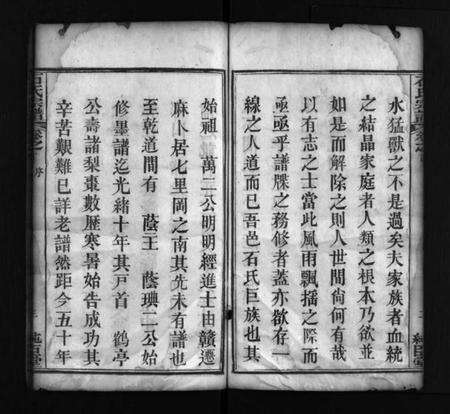 水猛獸之不是過矣夫家族者血統
之結晶家庭者人類之根本乃欲並
如是而解除之則人世間尚何有哉
以有志之士當此風雨飄搖之際而
亟亟乎譜牒之務修者蓋亦欲存一
線之人道而已吾邑石氏巨族也其
始祖 萬二公明明經進士由贛遷
麻卜居七里岡之南其先未有譜也
至乾道間有 蔭王 蔭璵二公始
修墨譜迄光緒十年其戸首 鶴亭
公壽諸梨棗數歷寒暑始告成功其
辛苦艱難已詳老譜然距今五十年
石氏宗譜 卷之 序